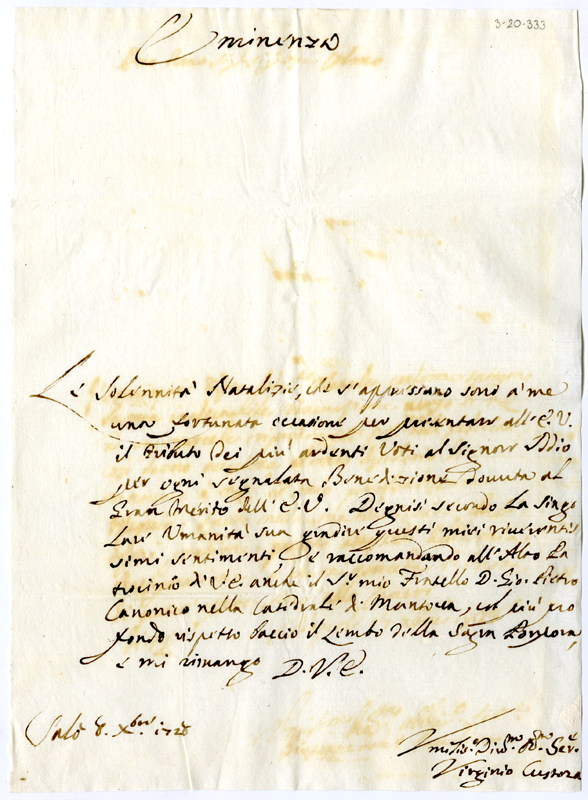 3-20-333
Eminenza
Le Solennità Natalizie, che s'appressano sono à me
una fortunata occasione per presentare all'E.V.
il tributo dei più ardenti Voti al Signore Iddio
per ogni segnalata Benedizione dovuta al
Gran Merito dell'E.V. Degnisi secondo La singo
lare Umanità sua gradire questi miei riverentis
simi sentimenti, e raccomandando all'Alto Pa
trocinio di V.E. anche il Sr. mio Fratello D. Gio. Pietro
Canonico nella Catedrale di Mantova, col più pro
fondo rispetto baccio il Lembo della Sagra Porpora,
e mi rimango D.V.E.
Salò 8. Xbre 1728
Umilis.o Div.mo Ser.e
Virginio Custoza